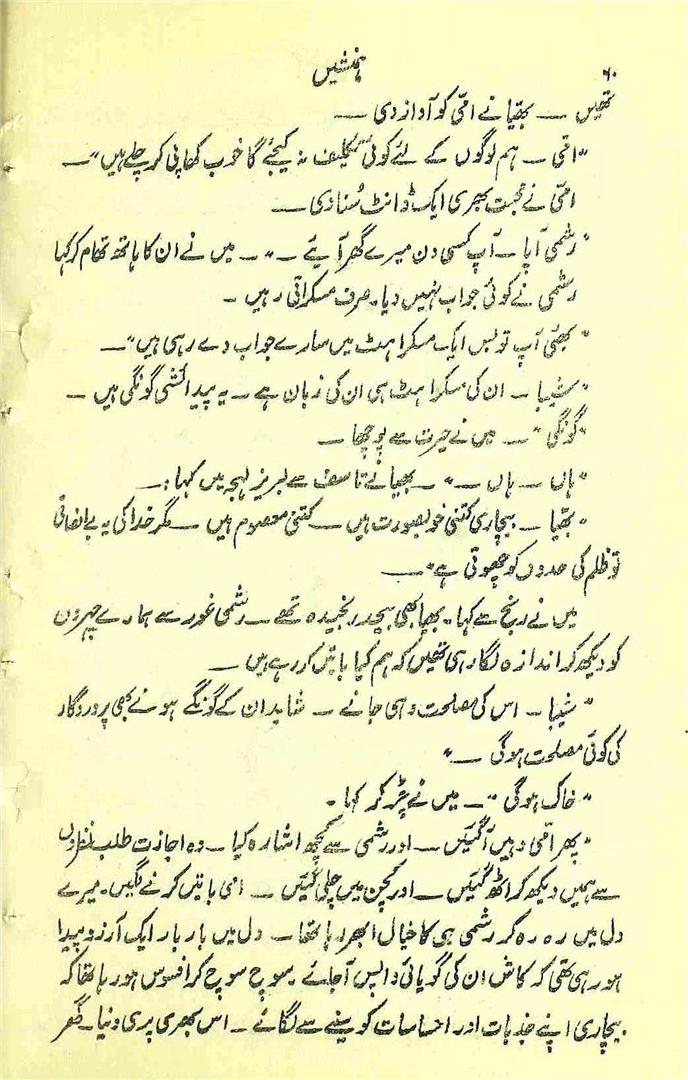 ۶۰
ہمنشیں
تھیں — بھیّا نے امّی کو آواز دی —
"امّی — ہم لوگوں کے لئے کوئی تکلیف نہ کیجئے گا خوب کھا پی کر چلے ہیں" —
امّی نے محبت بھری ایک ڈانٹ سُنا دی —
"رشمی آپا — آپ کسی دن میرے گھر آیئے —" — میں نے ان کا ہاتھ تھام کر کہا
رشمی نے کوئی جواب نہیں دیا۔ صرف مسکراتی رہیں ۔
"بھئی آپ تو بس ایک مسکراہٹ میں سارے جواب دے رہی ہیں" —
"شیبا — ان کی مسکراہٹ ہی ان کی زبان ہے — یہ پیدائشی گونگی ہیں —
"گونگی" — میں نے حیرت سے پوچھا —
"ہاں — ہاں —" — بھیا نے تاسف سے لبریز لہجہ میں کہا :—
"بھیّا — بیچاری کتنی خوبصورت ہیں — کتنی معصوم ہیں — مگر خدا کی یہ بے انصافی
تو ظلم کی حدوں کو چھوتی ہے" —
میں نے رنج سے کہا۔ بھیا بھی بیحد رنجیدہ تھے — رشمی غور سے ہمارے چہروں
کو دیکھ کر اندازہ لگا رہی تھیں کہ ہم کیا باتیں کر رہے ہیں —
"شیبا — اس کی مصلحت وہی جانے — شاید ان کے گونگے ہونے بھی پروردگار
کی کوئی مصلحت ہوگی —"
"خاک ہوگی" — میں نے چڑ کر کہا ۔
"پھر امّی وہیں آ گئیں — اور رشمی سے کچھ اشارہ کیا — وہ اجازت طلب نظروں
سے ہمیں دیکھ کر اٹھ گئیں — اور کچن میں چلی گئیں — امی باتیں کرنے لگیں۔ میرے
دل میں رہ رہ کر رشمی ہی کا خیال ابھر رہا تھا — دل میں بار بار ایک آرزو پیدا
ہو رہی تھی کہ کاش ان کی گویائی واپس آ جائے ۔ سوچ سوچ کر افسوس ہو رہا تھا کہ
بیچاری اپنے جذبات اور احساسات کو سینے سے لگائے — اس بھری پری دنیا۔ گھر